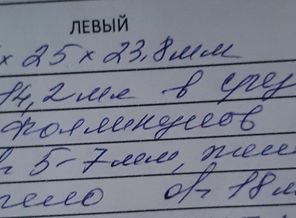 ЛЕВЫЙ
х 25 х 23,8мм
14,2мм в сред
фолликулов
5-7мм, жел
тело d- 18м